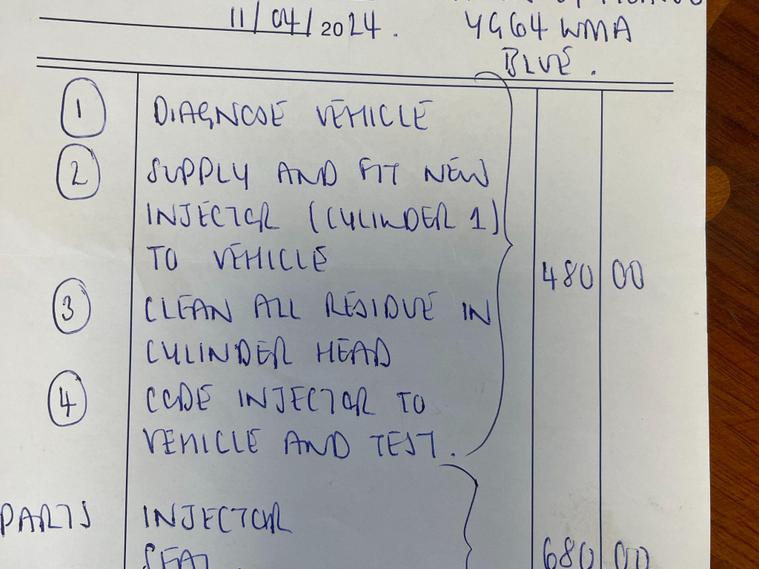 11/04/2024. YG64 WMA
BLUE.
1 DIAGNOSE VEHICLE
2 SUPPLY AND FIT NEW
INJECTOR (CYLINDER 1)
TO VEHICLE
480 00
3 CLEAN ALL RESIDUE IN
CYLINDER HEAD
4 CODE INJECTOR TO
VEHICLE AND TEST.
PARTS INJECTOR
SEAL 680 00